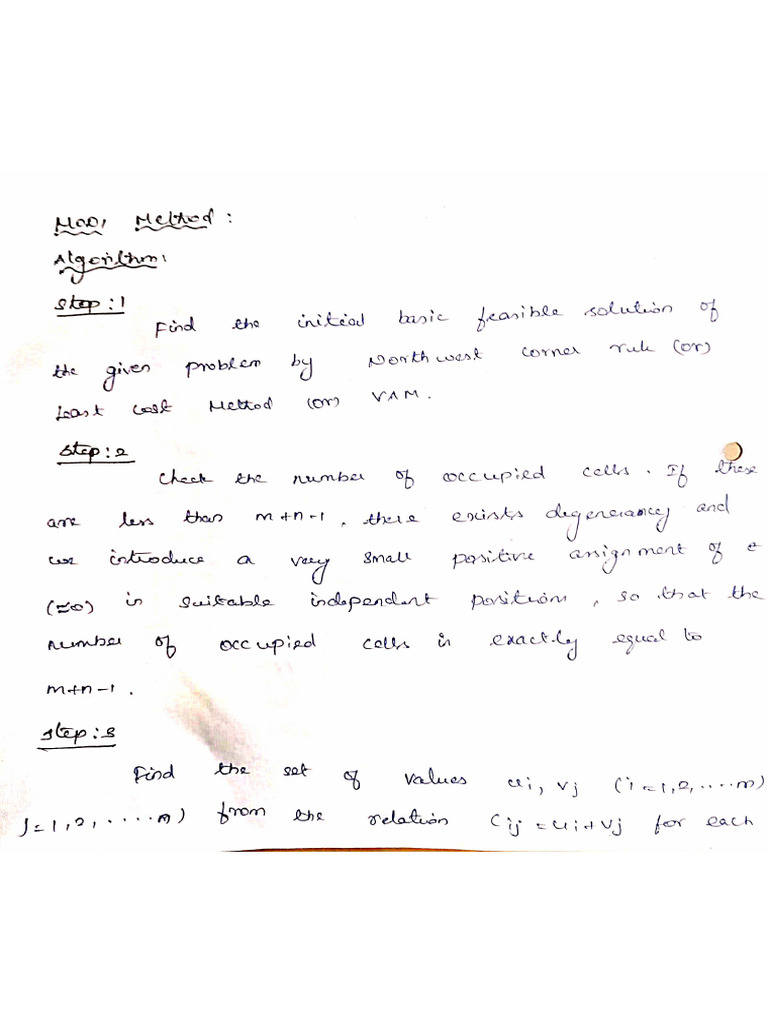 MODI Method :
Algorithm:
Step : 1
Find the initial basic feasible solution of
the given problem by North west corner rule (or)
Least cost Method (or) VAM.
Step : 2
Check the number of occupied cells. If these
are less than m+n-1, there exists degenerancy and
we introduce a very small positive assignment of e
(≈0) in suitable independent position, so that the
number of occupied cells is exactly equal to
m+n-1.
Step : 3
Find the set of values ui, vj (i=1,2,....m)
J=1,2,.....n) from the relation Cij = ui+vj for each